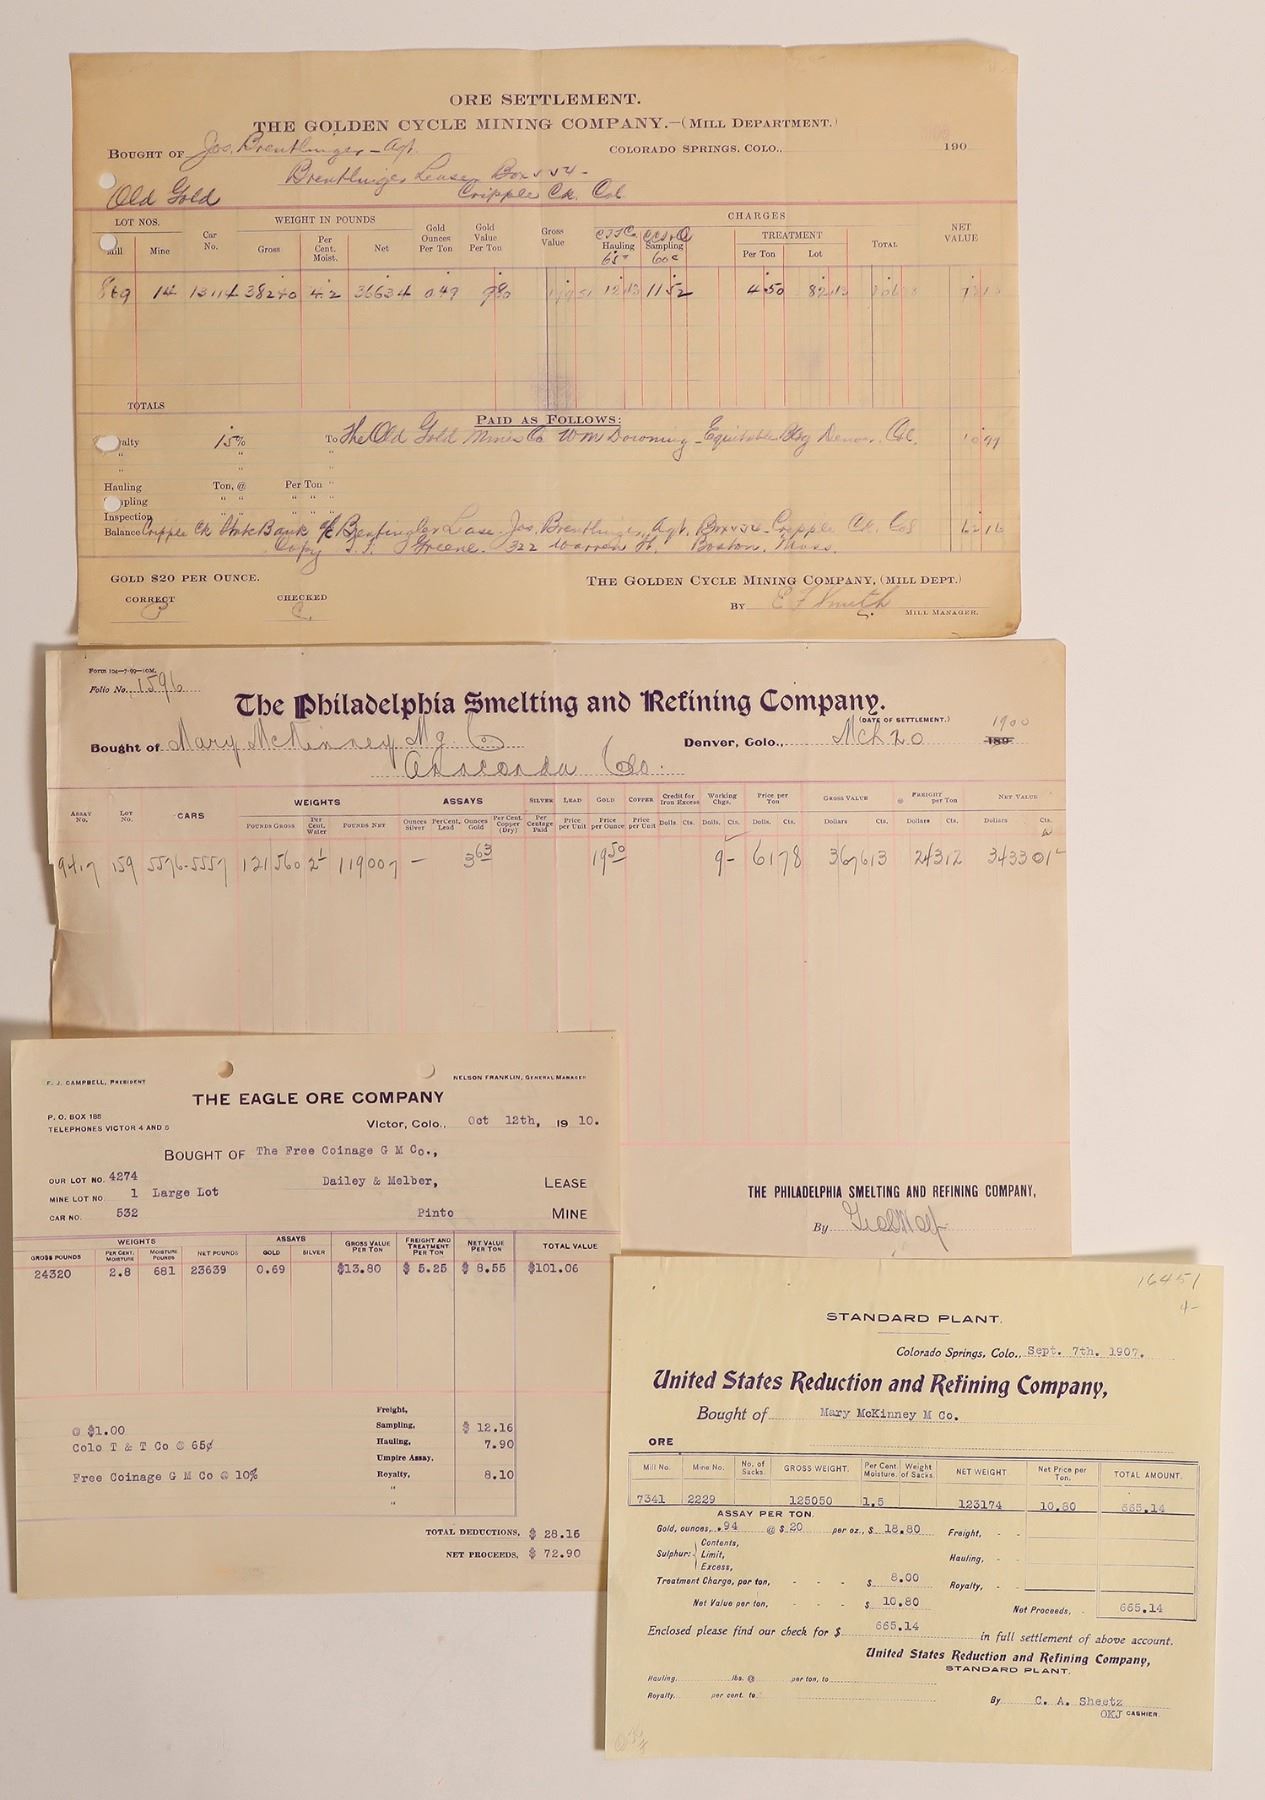 ORE SETTLEMENT.
THE GOLDEN CYCLE MINING COMPANY.—(MILL DEPARTMENT.)
BOUGHT OF Jos. Brentlinger - Agt. COLORADO SPRINGS, COLO., 190
Brentlinger Lease Box 554 -
Old Gold Cripple Ck. Col.
LOT NOS. WEIGHT IN POUNDS CHARGES
Mill Mine Car No. Gross Per Cent. Moist. Net Gold Ounces Per Ton Gold Value Per Ton Gross Value Hauling Sampling TREATMENT Per Ton Lot TOTAL NET VALUE
65c 60c
869 14 13114 38240 4.2 36634 0.49 9 80 179 51 12 13 11 52 4 50 82 13
TOTALS
PAID AS FOLLOWS:
alty 15% To The Old Gold Mines Co Wm Downing - Equitable Bldg Denver. Col. 10 99
" " "
" " "
Hauling Ton, @ Per Ton "
pling " " " " "
Inspection " " " " "
Balance Cripple Ck State Bank a/c Brentlinger Lease. Jos. Brentlinger, Agt. Box 554 - Cripple Ck. Col 62 16
Copy Greene. 322 Warren St. Boston, Mass.
GOLD $20 PER OUNCE. THE GOLDEN CYCLE MINING COMPANY, (MILL DEPT.)
CORRECT CHECKED BY E F Smith
C. MILL MANAGER.
Form 104—7-99—10M.
Folio No. 1596
The Philadelphia Smelting and Refining Company.
(DATE OF SETTLEMENT.) 1900
Bought of Mary McKinney Mg. Co Denver, Colo., Mch 20 189
Anaconda Colo.
WEIGHTS ASSAYS SILVER LEAD GOLD COPPER Credit for Iron Excess Working Chgs. Price per Ton GROSS VALUE FREIGHT @ per Ton NET VALUE
ASSAY No. LOT No. CARS POUNDS GROSS Per Cent. Water POUNDS NET Ounces Silver Per Cent. Lead Ounces Gold Per Cent. Copper (Dry) Per Centage Paid Price per Unit Price per Ounce Price per Unit Dolls. Cts. Dolls. Cts. Dolls. Cts. Dollars Cts. Dollars Cts. Dollars Cts.
9417 159 5576-5557 121560 2 1 119007 — 3 63 19 50 9- 61 78 3676 13 243 12 3433 01
THE PHILADELPHIA SMELTING AND REFINING COMPANY,
By
F. J. CAMPBELL, PRESIDENT NELSON FRANKLIN, GENERAL MANAGER
THE EAGLE ORE COMPANY
P. O. BOX 188
TELEPHONES VICTOR 4 AND 8
Victor, Colo., Oct 12th, 19 10.
BOUGHT OF The Free Coinage G M Co.,
OUR LOT NO. 4274 Dailey & Melber, LEASE
MINE LOT NO. 1 Large Lot
CAR NO. 532 Pinto MINE
WEIGHTS ASSAYS
GROSS POUNDS PER CENT. MOISTURE MOISTURE POUNDS NET POUNDS GOLD SILVER GROSS VALUE PER TON FREIGHT AND TREATMENT PER TON NET VALUE PER TON TOTAL VALUE
24320 2.8 681 23639 0.69 $13.80 $ 5.25 $ 8.55 $101.06
Freight,
@ $1.00 Sampling, $ 12.16
Colo T & T Co @ 65¢ Hauling, 7.90
Umpire Assay,
Free Coinage G M Co @ 10% Royalty, 8.10
"
"
TOTAL DEDUCTIONS, $ 28.16
NET PROCEEDS, $ 72.90
16451
4-
STANDARD PLANT.
Colorado Springs, Colo., Sept. 7th. 1907.
United States Reduction and Refining Company,
Bought of Mary McKinney M Co.
ORE
Mill No. Mine No. No. of Sacks. GROSS WEIGHT. Per Cent. Moisture. Weight of Sacks. NET WEIGHT Net Price per Ton. TOTAL AMOUNT.
7341 2229 125050 1.5 123174 10.80 665.14
ASSAY PER TON.
Gold, ounces, .94 @ $ 20 per oz., $ 18.80 Freight, - -
Sulphur: Contents, Limit, Excess, Hauling, - -
Treatment Charge, per ton, - - - $ 8.00 Royalty, - -
Net Value per ton, - - - $ 10.80 Net Proceeds, - 665.14
Enclosed please find our check for $ 665.14 in full settlement of above account.
United States Reduction and Refining Company,
STANDARD PLANT.
Hauling, lbs. @ per ton, to
Royalty, per cent. to
By C. A. Sheetz
OKJ CASHIER.